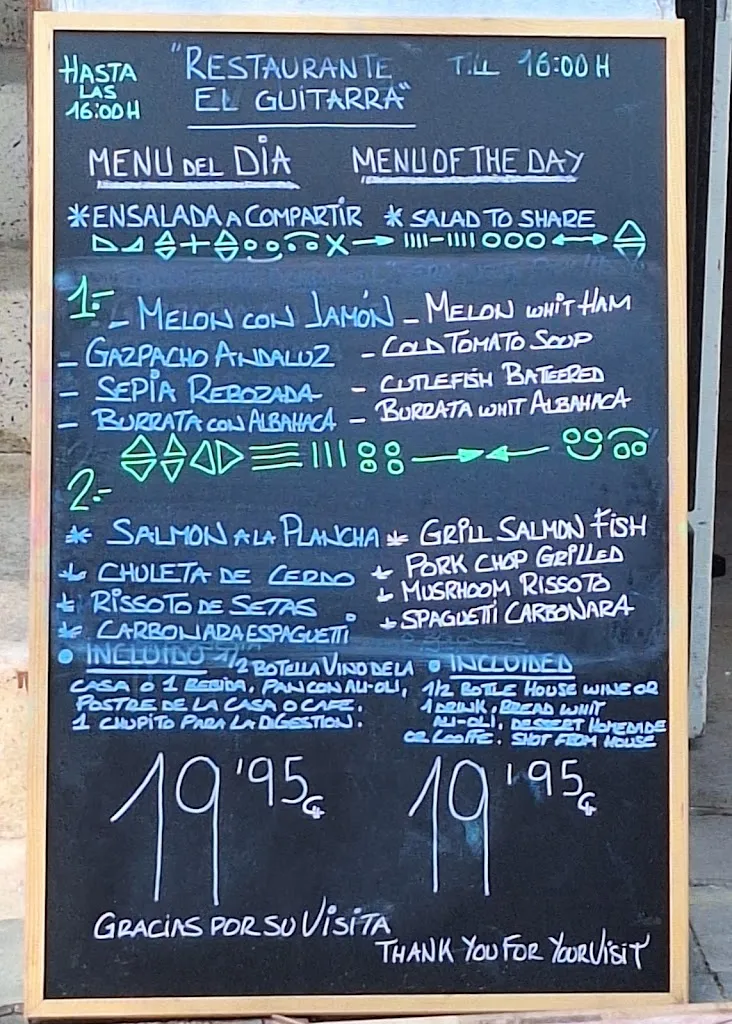 HASTA LAS 16:00H
"RESTAURANTE EL GUITARRA"
TILL 16:00H
MENU DEL DÍA
MENU OF THE DAY
*ENSALADA A COMPARTIR
* SALAD TO SHARE
1.-
- MELON CON JAMÓN
- MELON WHIT HAM
- GAZPACHO ANDALUZ
- COLD TOMATO SOUP
- SEPIA REBOZADA
- CUTLEFISH BATEERED
- BURRATA CON ALBAHACA
- BURRATA WHIT ALBAHACA
2.-
* SALMON A LA PLANCHA
* GRILL SALMON FISH
* CHULETA DE CERDO
* PORK CHOP GRILLED
* RISSOTO DE SETAS
* MUSRHOOM RISSOTO
* CARBONARA ESPAGUETTI
* SPAGUETTI CARBONARA
• INCLUIDO 1/2 BOTELLA VINO DE LA
CASA O 1 BEBIDA, PAN CON ALI-OLI,
POSTRE DE LA CASA O CAFE.
1 CHUPITO PARA LA DIGESTION.
• INCLUIDED
1/2 BOTLE HOUSE WINE OR
1 DRINK, BREAD WHIT
ALI-OLI, DESSERT HOMEDADE
OR COOFFE. SHOT FROM HOUSE
19'95€
19'95€
GRACIAS POR SU VISITA
THANK YOU FOR YOUR VISIT